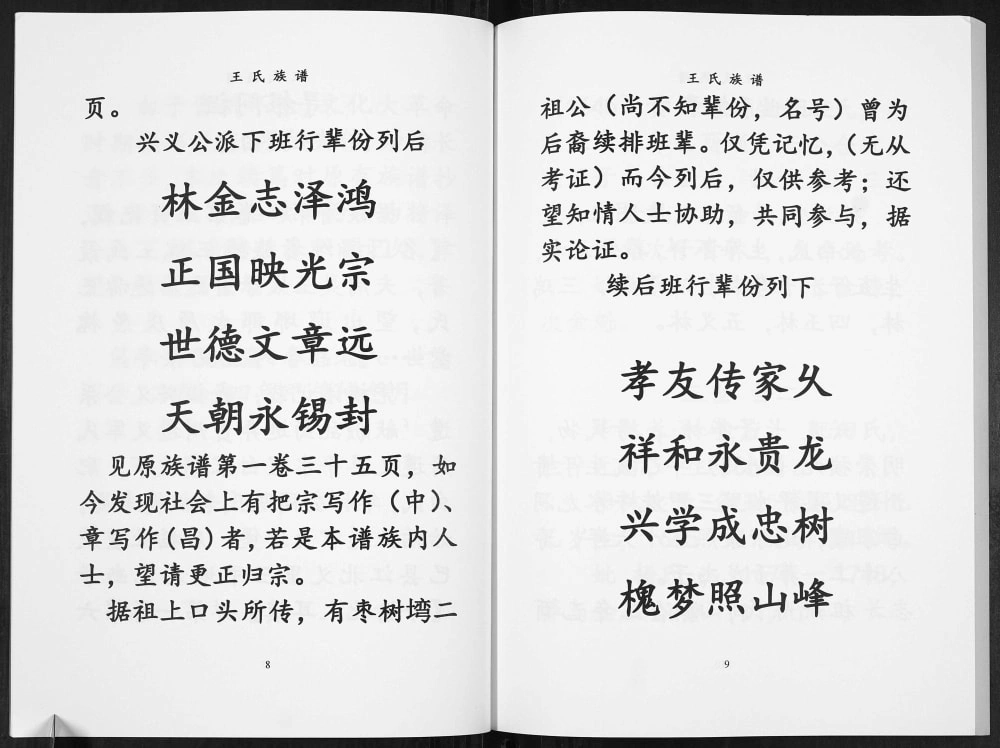 王氏族谱
页。
兴义公派下班行辈份列后
林金志泽鸿
正国映光宗
世德文章远
天朝永锡封
见原族谱第一卷三十五页，如
今发现社会上有把宗写作（中）、
章写作（昌）者，若是本谱族内人
士，望请更正归宗。
据祖上口头所传，有枣树塆二
8
王氏族谱
祖公（尚不知辈份，名号）曾为
后裔续排班辈。仅凭记忆，（无从
考证）而今列后，仅供参考；还
望知情人士协助，共同参与，据
实论证。
续后班行辈份列下
孝友传家乆
祥和永贵龙
兴学成忠树
槐梦照山峰
9